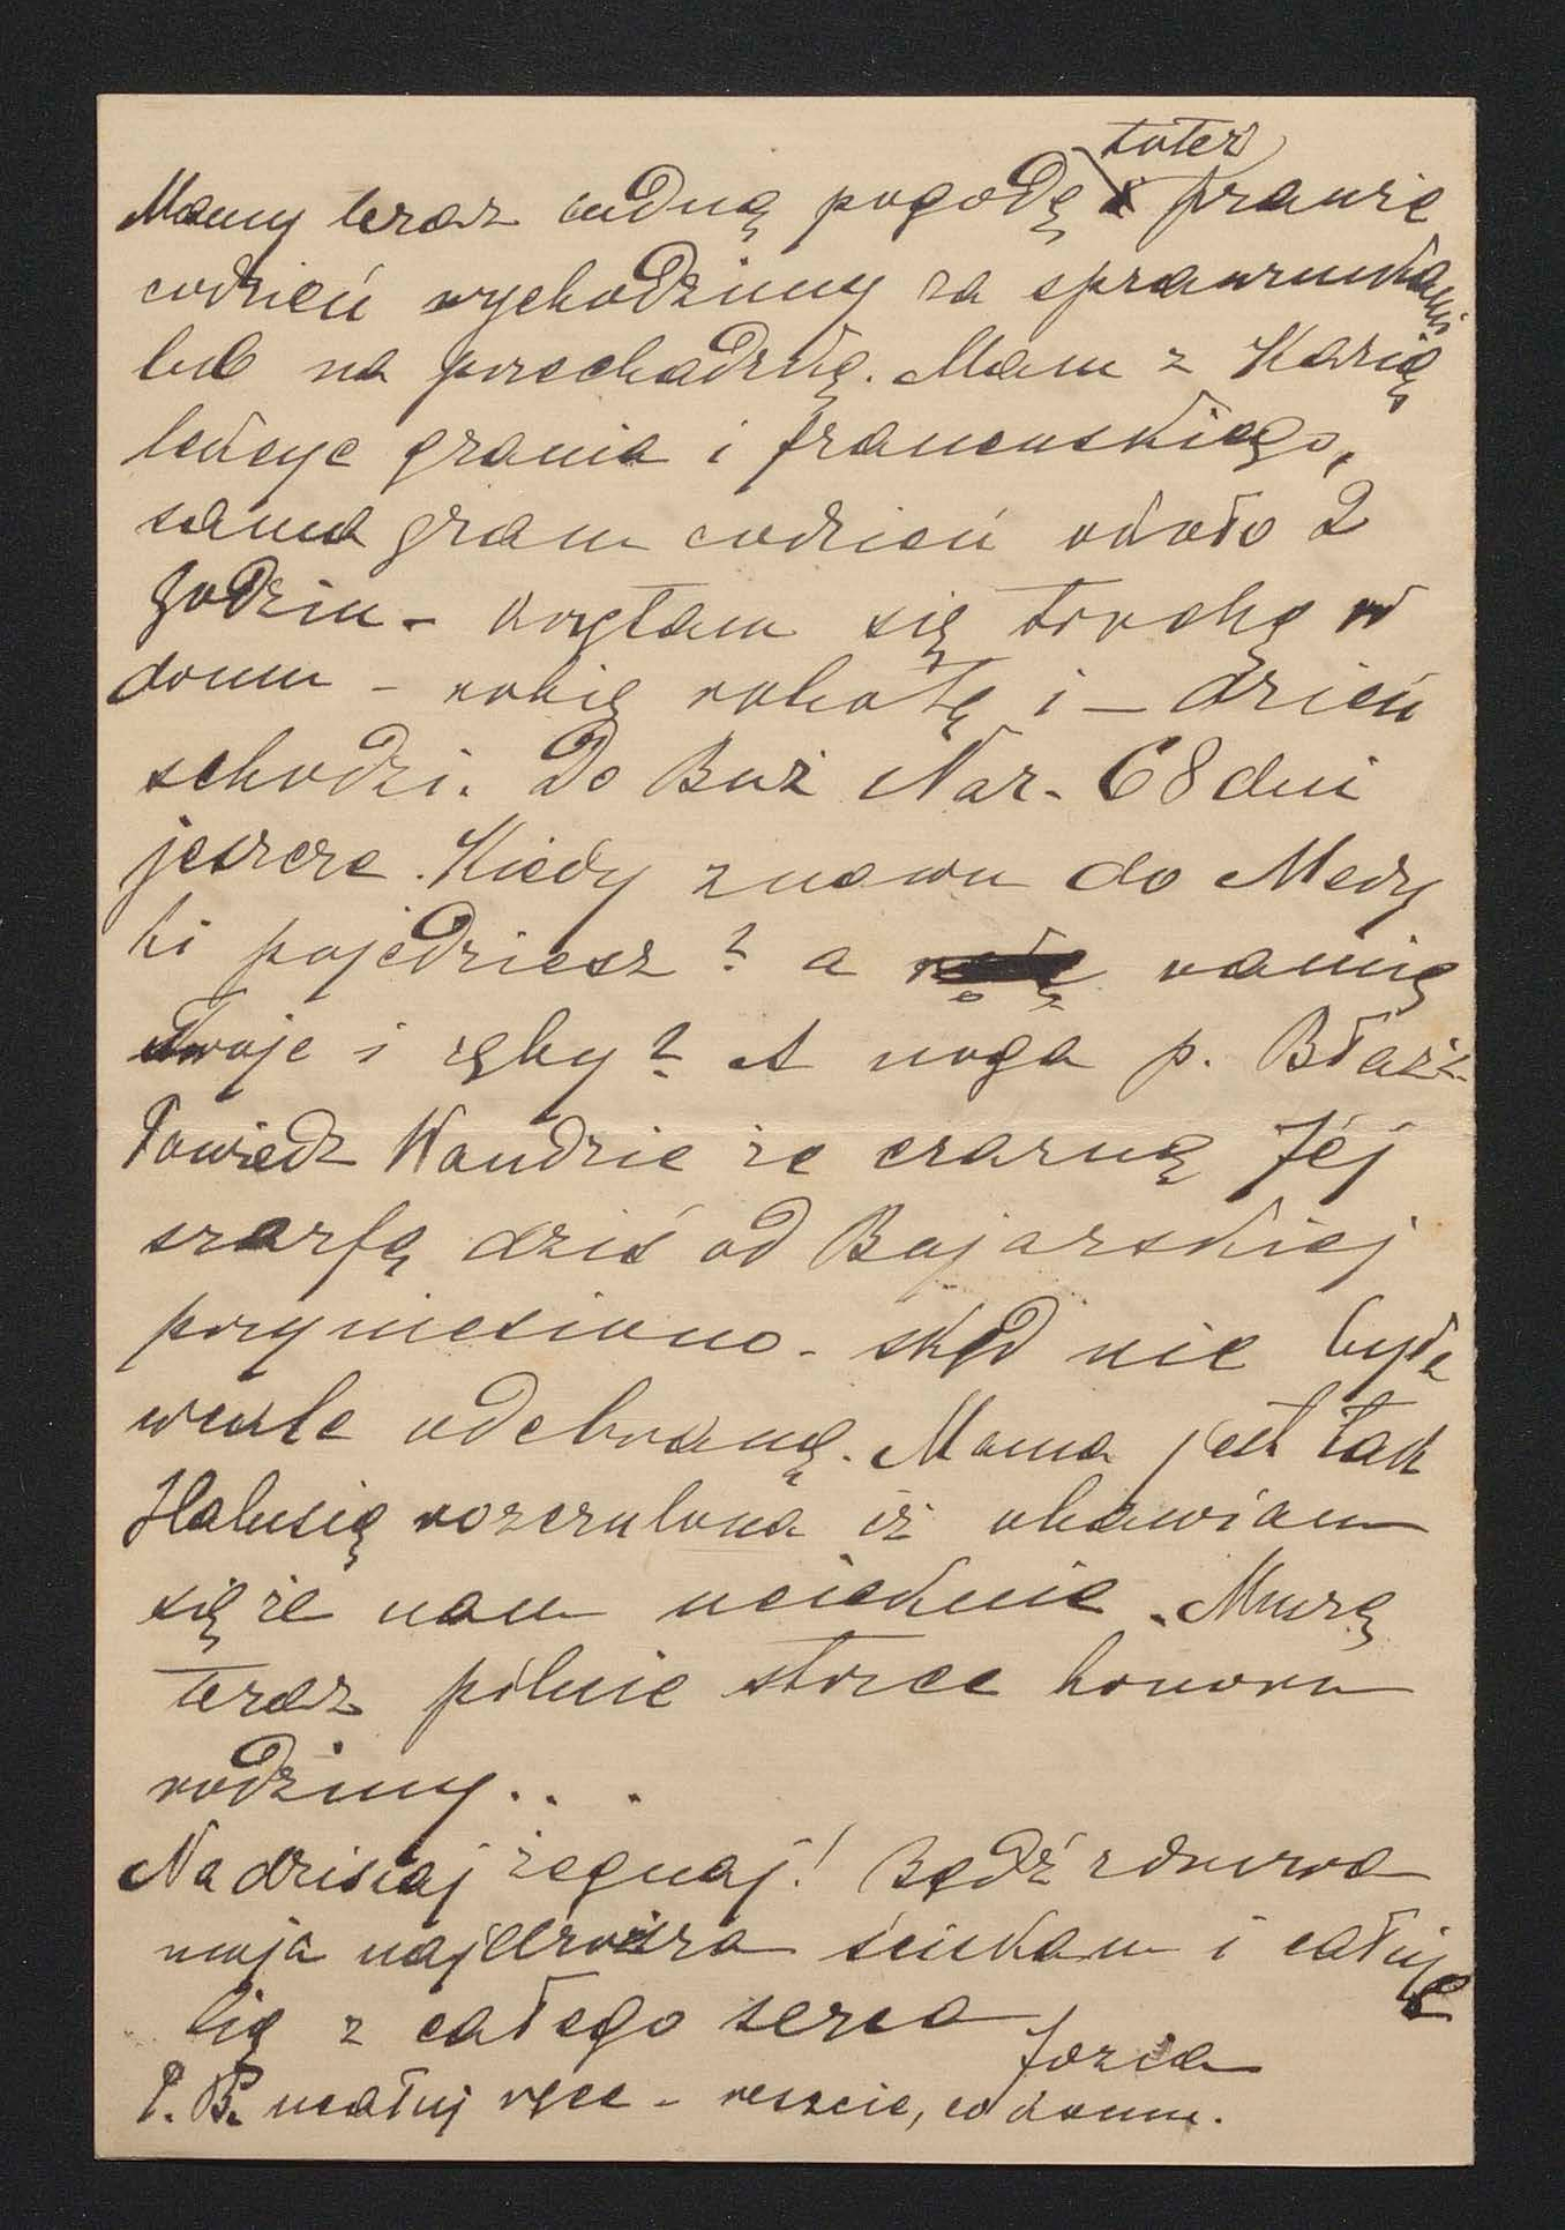 toteż
Mamy teraz cudną pogodę prawie
codzień wychodzimy za sprawunkami
lub na przechadzkę. Mam z Kazią
lekcye grania i francuskiego,
sama gram codzień około 2
godzin - krzątam się trochę w
domu - robię robotę i — dzień
schodzi. Do Boż Nar. 68 dni
jeszcze. Kiedy znowu do Medy
ki pojedziesz? a ramię
Twoje i zęby? A noga p. Błaż.
Powiedz Wandzie że czarną Jéj
szarfę dziś od Bojarskiej
przyniesiono - skąd nie była
wcale odebraną. Mama jest tak
Halusią rozczuloną iż obawiam
się że nam ucieknie. Muszę
teraz pilnie strzec honoru
rodziny...
Na dzisiaj żegnaj! Bądź zdrowa
moja najdroższa ściskam i całuję
Cię z całego serca
Jozia
P. B. ucałuj ręce - reszcie, co w domu.